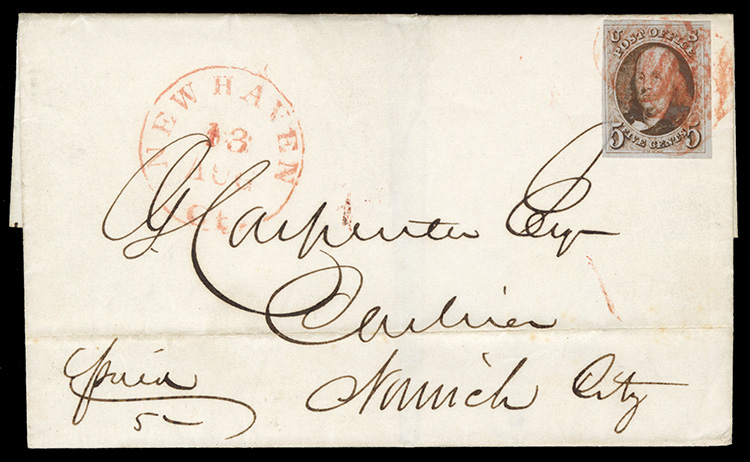 U S
POST OFFICE
5 FIVE CENTS 5
NEW HAVEN
13
AUG
Ct.
G Carpenter Esq
Cashier
Norwich City
paid
5